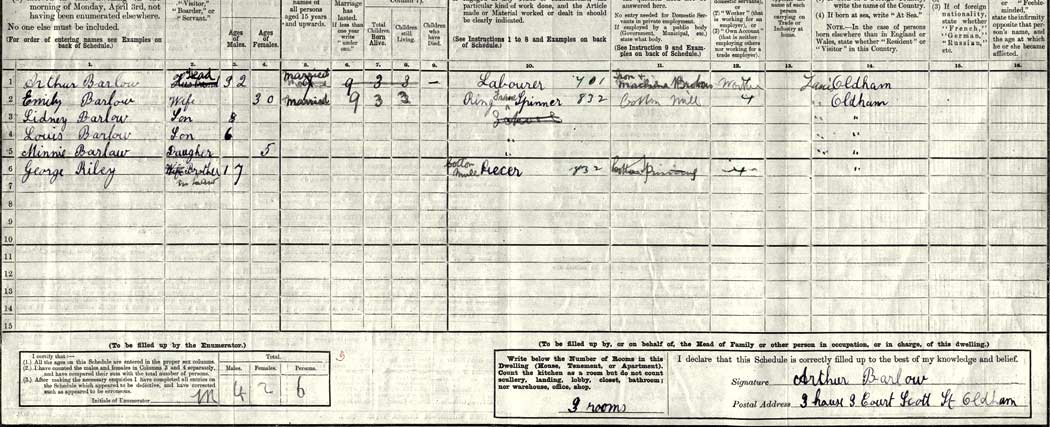 morning of Monday, April 3rd, not having been enumerated elsewhere.
No one else must be included.
(For order of entering names see Examples on back of Schedule.)
"Visitor," "Boarder," or "Servant."
Ages of Males.
Ages of Females.
names of all persons aged 15 years and upwards.
Marriage has lasted. If less than one year write "under one."
Total Children Born Alive.
Children still Living.
Children who have Died.
particular kind of work done, and the Article made or Material worked or dealt in should be clearly indicated.
(See Instructions 1 to 8 and Examples on back of Schedule.)
answered here.
No entry needed for Domestic Servants in private employment. If employed by a public body (Government, Municipal, etc.) state what body.
(See Instruction 9 and Examples on back of Schedule.)
(2) "Worker" (that is working for an employer), or
(3) "Own Account" (that is neither employing others nor working for a trade employer).
name of each person carrying on Trade or Industry at home.
write the name of the Country.
(4) If born at sea, write "At Sea."
NOTE.—In the case of persons born elsewhere than in England or Wales, state whether "Resident" or "Visitor" in this Country.
(3) If of foreign nationality, state whether "French," "German," "Russian," etc.
"Feeble-minded," state the infirmity opposite that person's name, and the age at which he or she became afflicted.
1. 2. 3. 4. 5. 6. 7. 8. 9. 10. 11. 12. 13. 14. 15. 16.
1 Arthur Barlow Head Husband 32 Married 9 3 3 – Labourer 701 Iron & Machine Brokers Worker Lanc Oldham
2 Emily Barlow Wife 30 Married 9 3 3 Ring Frame Spinner 832 Cotton Mill " Oldham
3 Sidney Barlow Son 8 School " "
4 Louis Barlow Son 6 " " "
5 Minnie Barlaw Daugher 5 " " "
6 George Riley Wife Brother 17 Cotton Mill Piecer 832 Cotton Spinning " "
7
8
9
10
11
12
13
14
15
(To be filled up by the Enumerator.)
I certify that:—
(1.) All the ages on this Schedule are entered in the proper sex columns.
(2.) I have counted the males and females in Columns 3 and 4 separately, and have compared their sum with the total number of persons.
(3.) After making the necessary enquiries I have completed all entries on the Schedule which appeared to be defective, and have corrected such as appeared to be erroneous.
Initials of Enumerator
Total.
Males. Females. Persons.
4 2 6
(To be filled up by, or on behalf of, the Head of Family or other person in occupation, or in charge, of this dwelling.)
Write below the Number of Rooms in this Dwelling (House, Tenement, or Apartment). Count the kitchen as a room but do not count scullery, landing, lobby, closet, bathroom; nor warehouse, office, shop.
3 rooms
I declare that this Schedule is correctly filled up to the best of my knowledge and belief.
Signature Arthur Barlow
Postal Address 3 house 3 Court Scott St Oldham